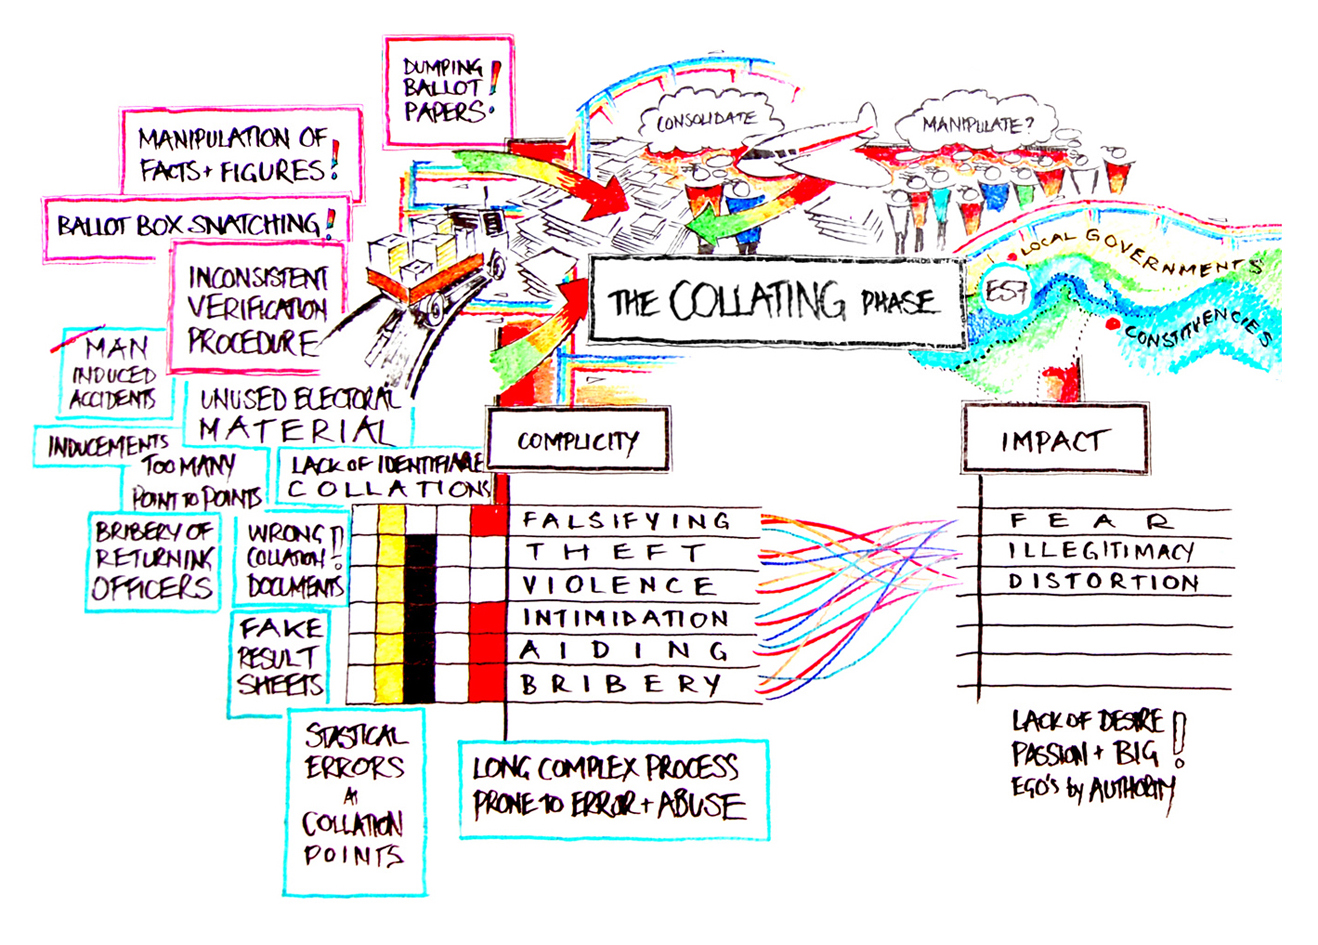 DUMPING
BALLOT
PAPERS!
MANIPULATION OF
FACTS + FIGURES!
BALLOT BOX SNATCHING!
INCONSISTENT
VERIFICATION
PROCEDURE
MAN
INDUCED
ACCIDENTS
UNUSED ELECTORAL
MATERIAL
INDUCEMENTS
TOO MANY
POINT TO POINTS
LACK OF IDENTIFIABLE
COLLATIONS
BRIBERY OF
RETURNING
OFFICERS
WRONG!!
COLLATION
DOCUMENTS
FAKE
RESULT
SHEETS
STASTICAL
ERRORS
AT
COLLATION
POINTS
LONG COMPLEX PROCESS
PRONE TO ERROR + ABUSE
CONSOLIDATE
MANIPULATE?
THE COLLATING PHASE
LOCAL GOVERNMENTS
CONSTITUENCIES
COMPLICITY
FALSIFYING
THEFT
VIOLENCE
INTIMIDATION
AIDING
BRIBERY
IMPACT
FEAR
ILLEGITIMACY
DISTORTION
LACK OF DESIRE
PASSION + BIG!
EGO'S by AUTHORITY